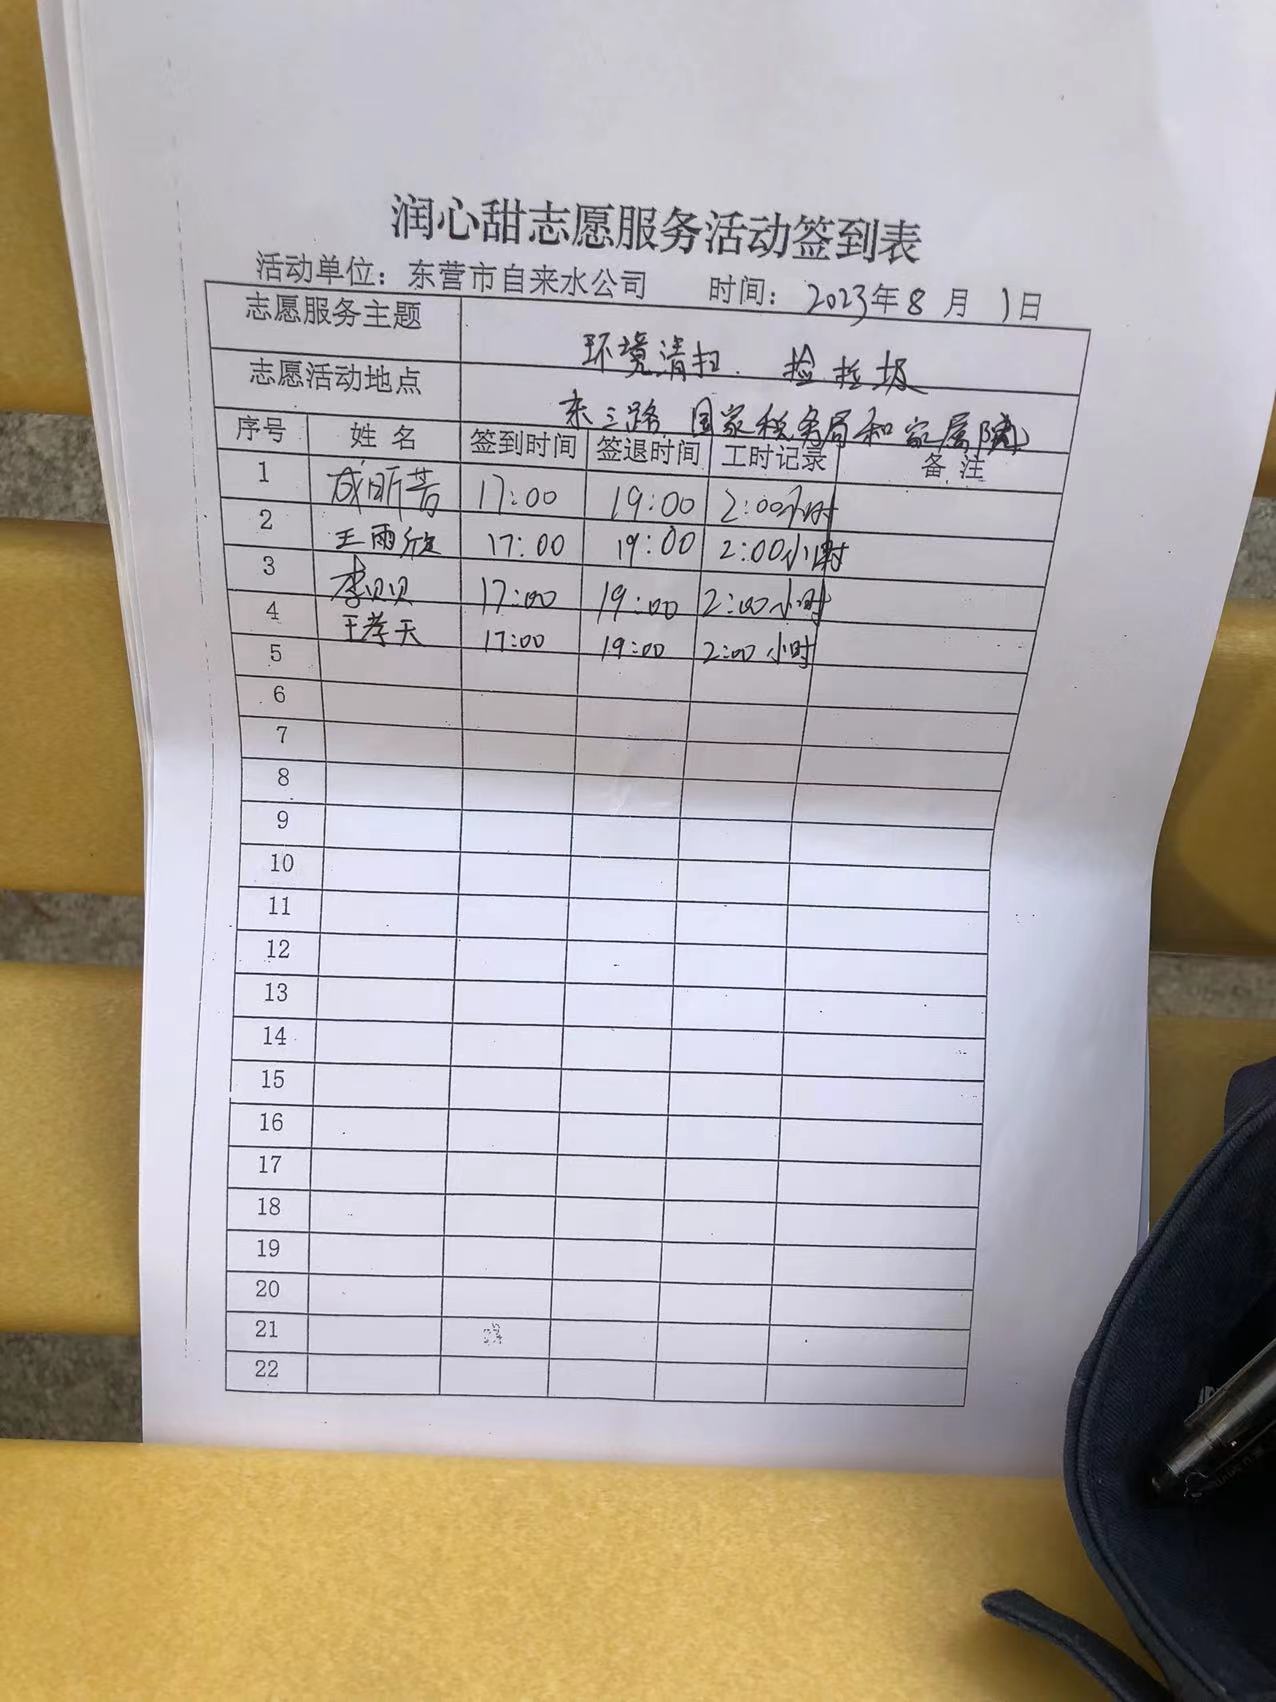 润心甜志愿服务活动签到表
活动单位：东营市自来水公司 时间：2023年8月1日
志愿服务主题 环境清扫 捡垃圾
志愿活动地点 东三路 国家税务局和家属院
序号 姓名 签到时间 签退时间 工时记录 备注
1 成昕昔 17:00 19:00 2:00小时
2 王雨欣 17:00 19:00 2:00小时
3 李贝贝 17:00 19:00 2:00小时
4 王孝天 17:00 19:00 2:00小时
5
6
7
8
9
10
11
12
13
14
15
16
17
18
19
20
21
22